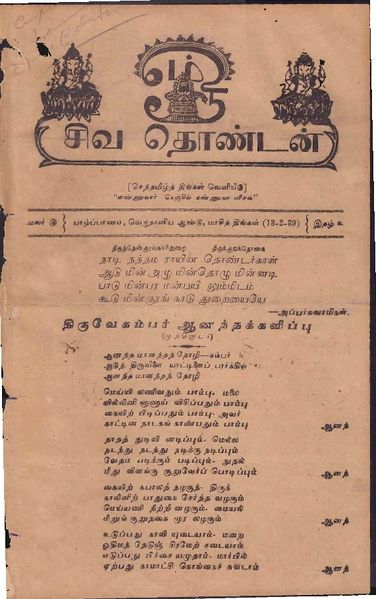 சிவ தொண்டன்
[செந்தமிழ்த் திங்கள் வெளியீடு]
"எண்ணுவார் நெஞ்சில் கண்ணுவா னீசன்"
மலர் ௫ } யாழ்ப்பாணம், வெகுதானிய ஆண்டு, மாசித் திங்கள் (13-2-39) { இதழ் ௨
திருத்தென்குரங்காடுதுறை திருக்குறுந்தொகை
நாடி நந்தம ராயின தொண்டர்காள்
ஆடு மின்அழு மின்தொழு மின்னடி
பாடு மின்பர மன்பயி லும்மிடம்
கூடு மின்குரங் காடு துறையையே
—அப்பர்சுவாமிகள்.
திருவேகம்பர் ஆனந்தக்களிப்பு
ஆனந்த மானந்தந் தோழி—கம்பர்
ஆடுந் திருவிளை யாட்டினைப் பார்க்கில்
ஆனந்த மானந்தந் தோழி
மெய்யி லணிவதும் பாம்பு- மலை
வில்லினி னாணாய் விசிப்பதும் பாம்பு
கையிற் பிடிப்பதும் பாம்பு- அவர்
காட்டின நாடகங் காண்பதும் பாம்பு ஆனந்
தாதத் துடியி னடிப்பும்- மெல்ல
நடந்து நடந்து நடிக்கு நடிப்பும்
வேதம் படிக்கும் படிப்பும்- நுதல்
மீது விளங்கு குறுவேர்ப் பொடிப்பும் ஆனந்
கையிற் கபாலத் தழகும்- திருக்
காலினிற் பாதுகை சேர்த்த வழகும்
மெய்யணி நீற்றி னழகும்- மையல்
மீறுங் குறுநகை மூர லழகும் ஆனந்
உடுப்பது காவி யுடையாம்- மறை
ஓதிமந் தேடுஞ் சிரமேற் சடையாம்
எடுப்பது பிச்சை யமுதாம்- மார்பில்
ஏற்பது காமாட்சி கொங்கைச் சுவடாம் ஆனந்